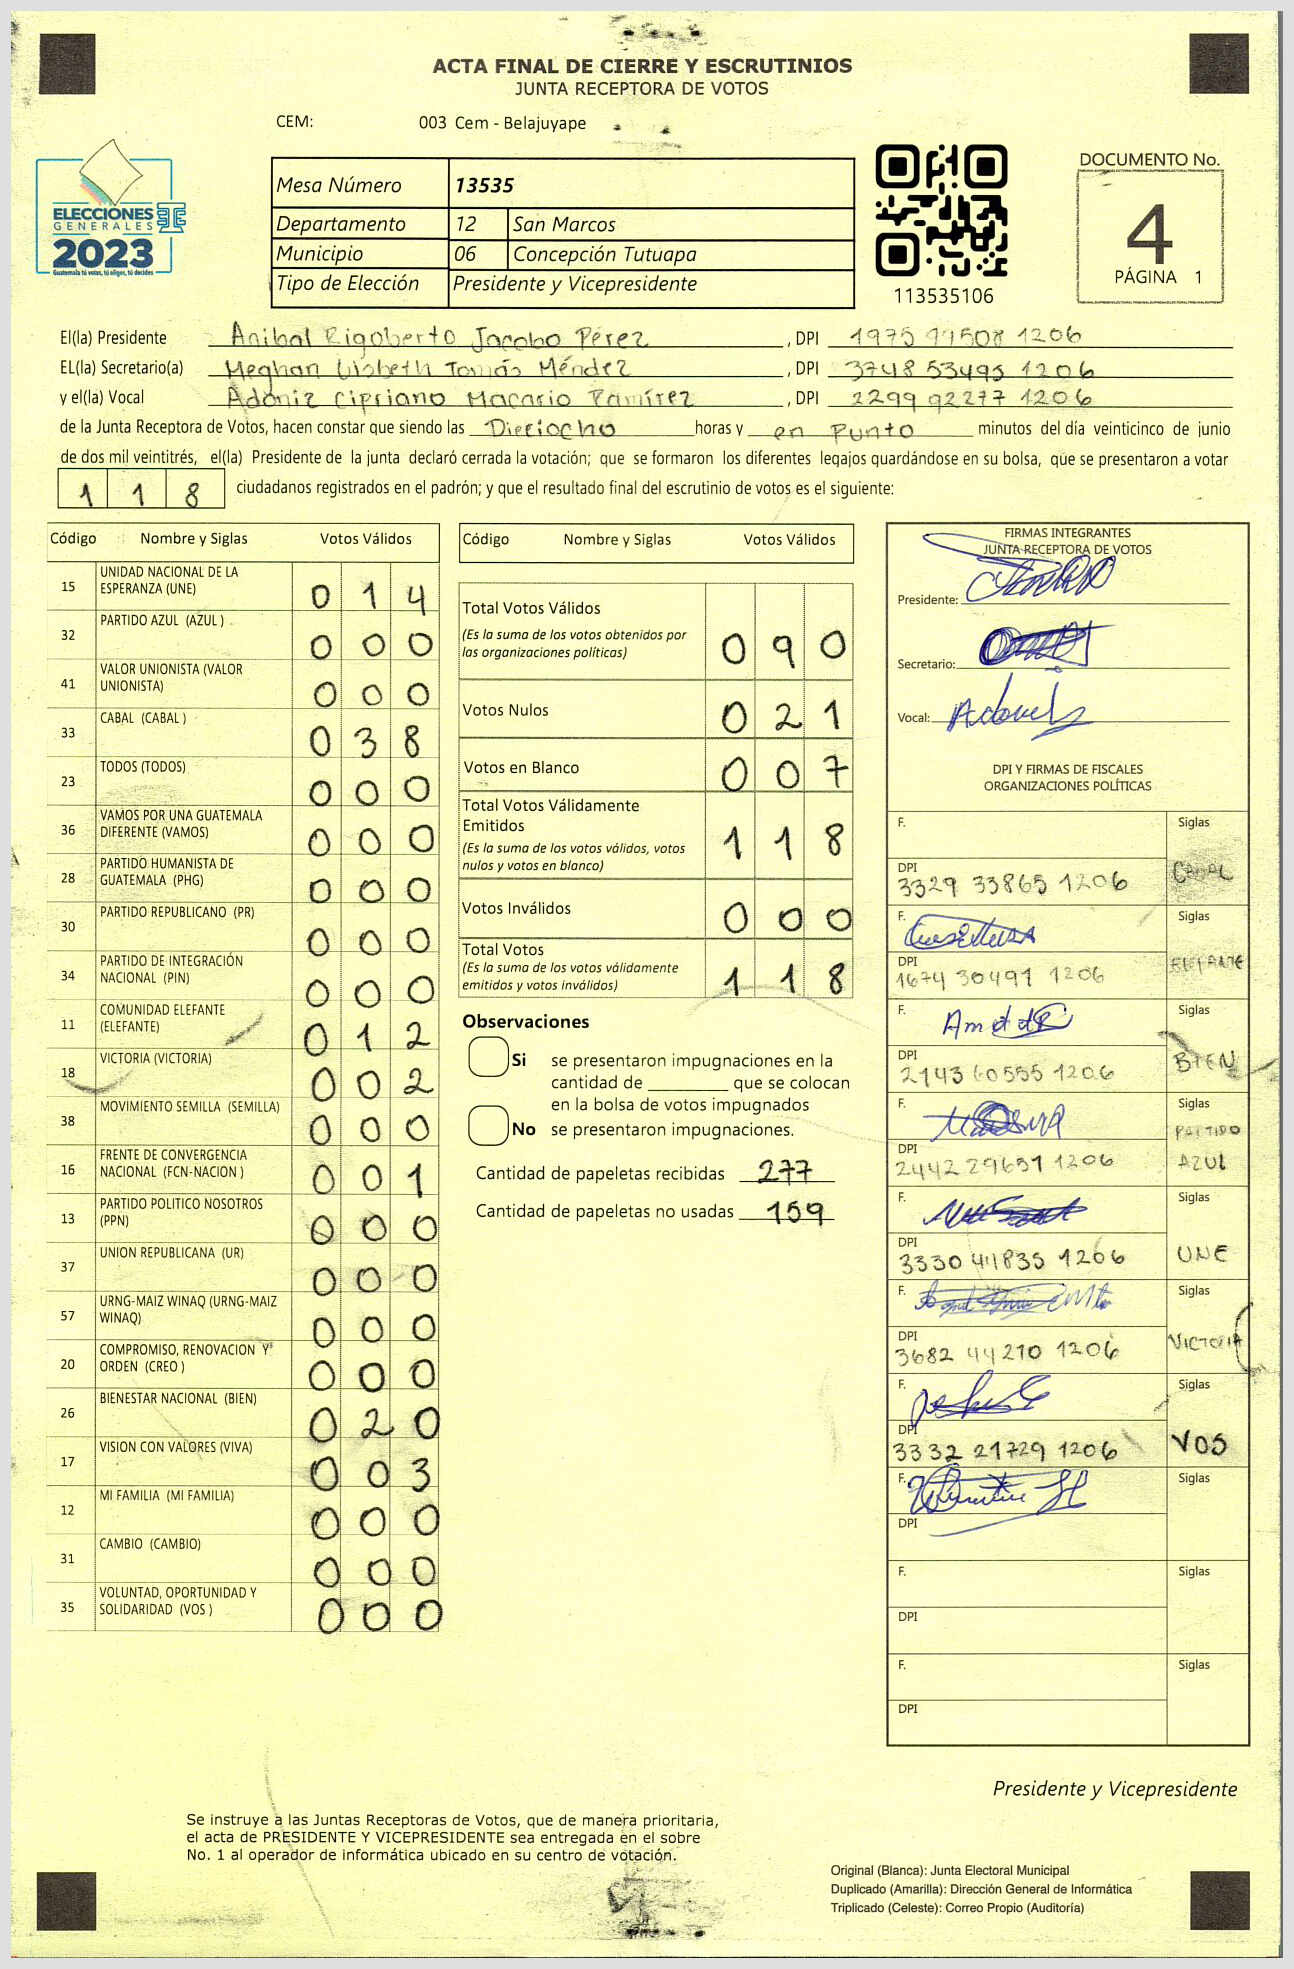 ACTA FINAL DE CIERRE Y ESCRUTINIOS
JUNTA RECEPTORA DE VOTOS
CEM: 003 Cem - Belajuyape
ELECCIONES
GENERALES
2023
Guatemala tú votas, tú eliges, tú decides
Mesa Número 13535
Departamento 12 San Marcos
Municipio 06 Concepción Tutuapa
Tipo de Elección Presidente y Vicepresidente
113535106
DOCUMENTO No.
4
PÁGINA 1
El(la) Presidente Anibal Rigoberto Jacobo Pérez, DPI 1975 99508 1206
EL(la) Secretario(a) Meghan Lisbeth Tomás Méndez, DPI 3748 53495 1206
y el(la) Vocal Adoniz Cipriano Macario Ramírez, DPI 2299 92277 1206
de la Junta Receptora de Votos, hacen constar que siendo las Dieciocho horas y en Punto minutos del día veinticinco de junio
de dos mil veintitrés, el(la) Presidente de la junta declaró cerrada la votación; que se formaron los diferentes legajos guardándose en su bolsa, que se presentaron a votar
118 ciudadanos registrados en el padrón; y que el resultado final del escrutinio de votos es el siguiente:
Código Nombre y Siglas Votos Válidos
15 UNIDAD NACIONAL DE LA ESPERANZA (UNE) 0 1 4
32 PARTIDO AZUL (AZUL ) 0 0 0
41 VALOR UNIONISTA (VALOR UNIONISTA) 0 0 0
33 CABAL (CABAL ) 0 3 8
23 TODOS (TODOS) 0 0 0
36 VAMOS POR UNA GUATEMALA DIFERENTE (VAMOS) 0 0 0
28 PARTIDO HUMANISTA DE GUATEMALA (PHG) 0 0 0
30 PARTIDO REPUBLICANO (PR) 0 0 0
34 PARTIDO DE INTEGRACIÓN NACIONAL (PIN) 0 0 0
11 COMUNIDAD ELEFANTE (ELEFANTE) 0 1 2
18 VICTORIA (VICTORIA) 0 0 2
38 MOVIMIENTO SEMILLA (SEMILLA) 0 0 0
16 FRENTE DE CONVERGENCIA NACIONAL (FCN-NACION ) 0 0 1
13 PARTIDO POLITICO NOSOTROS (PPN) 0 0 0
37 UNION REPUBLICANA (UR) 0 0 0
57 URNG-MAIZ WINAQ (URNG-MAIZ WINAQ) 0 0 0
20 COMPROMISO, RENOVACION Y ORDEN (CREO ) 0 0 0
26 BIENESTAR NACIONAL (BIEN) 0 2 0
17 VISION CON VALORES (VIVA) 0 0 3
12 MI FAMILIA (MI FAMILIA) 0 0 0
31 CAMBIO (CAMBIO) 0 0 0
35 VOLUNTAD, OPORTUNIDAD Y SOLIDARIDAD (VOS ) 0 0 0
Código Nombre y Siglas Votos Válidos
Total Votos Válidos 0 9 0
(Es la suma de los votos obtenidos por
las organizaciones políticas)
Votos Nulos 0 2 1
Votos en Blanco 0 0 7
Total Votos Válidamente
Emitidos 1 1 8
(Es la suma de los votos válidos, votos
nulos y votos en blanco)
Votos Inválidos 0 0 0
Total Votos 1 1 8
(Es la suma de los votos válidamente
emitidos y votos inválidos)
Observaciones
Si se presentaron impugnaciones en la
cantidad de ________ que se colocan
en la bolsa de votos impugnados
No se presentaron impugnaciones.
Cantidad de papeletas recibidas 277
Cantidad de papeletas no usadas 159
FIRMAS INTEGRANTES
JUNTA RECEPTORA DE VOTOS
Presidente:
Secretario:
Vocal:
DPI Y FIRMAS DE FISCALES
ORGANIZACIONES POLÍTICAS
F. Siglas
DPI 3329 33865 1206 CABAL
F. Siglas
DPI 1674 30491 1206 ELEFANTE
F. Siglas
DPI 2143 60555 1206 BIEN
F. Siglas
DPI 2442 29651 1206 PARTIDO AZUL
F. Siglas
DPI 3330 44835 1206 UNE
F. Siglas
DPI 3682 44210 1206 VICTORIA
F. Siglas
DPI 3332 21729 1206 VOS
F. Siglas
DPI
F. Siglas
DPI
F. Siglas
DPI
Presidente y Vicepresidente
Se instruye a las Juntas Receptoras de Votos, que de manera prioritaria,
el acta de PRESIDENTE Y VICEPRESIDENTE sea entregada en el sobre
No. 1 al operador de informática ubicado en su centro de votación.
Original (Blanca): Junta Electoral Municipal
Duplicado (Amarilla): Dirección General de Informática
Triplicado (Celeste): Correo Propio (Auditoría)